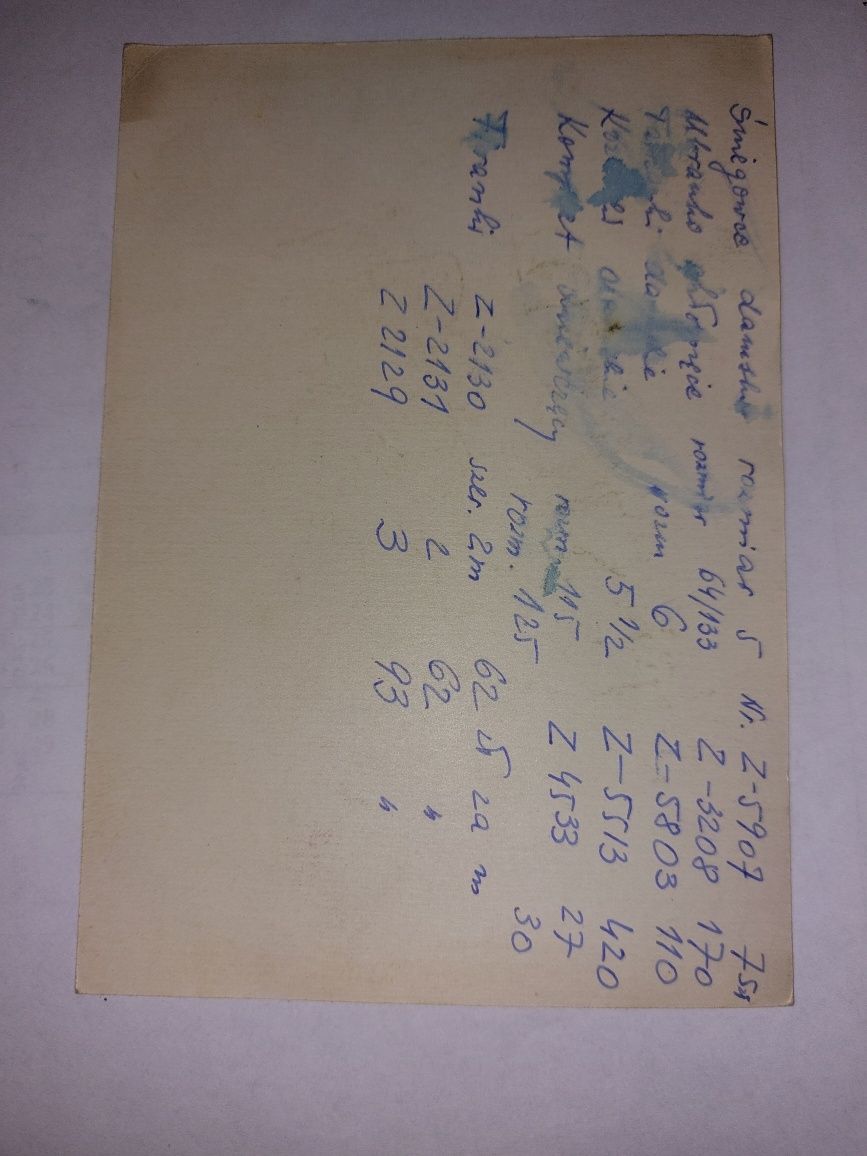 Śniegowce damskie rozmiar 5 Nr. Z-5907 75zł
Ubranko chłopięce rozmiar 64/133 Z-3208 170
damskie rozm 6 Z-5803 110
damskie 5 1/2 Z-5513 420
Komplet rozm 115 Z 4533 27
rozm. 125 30
Firanki Z-2130 szer. 2m 62 zł za m
Z-2131 2 62 "
Z 2129 3 93 "